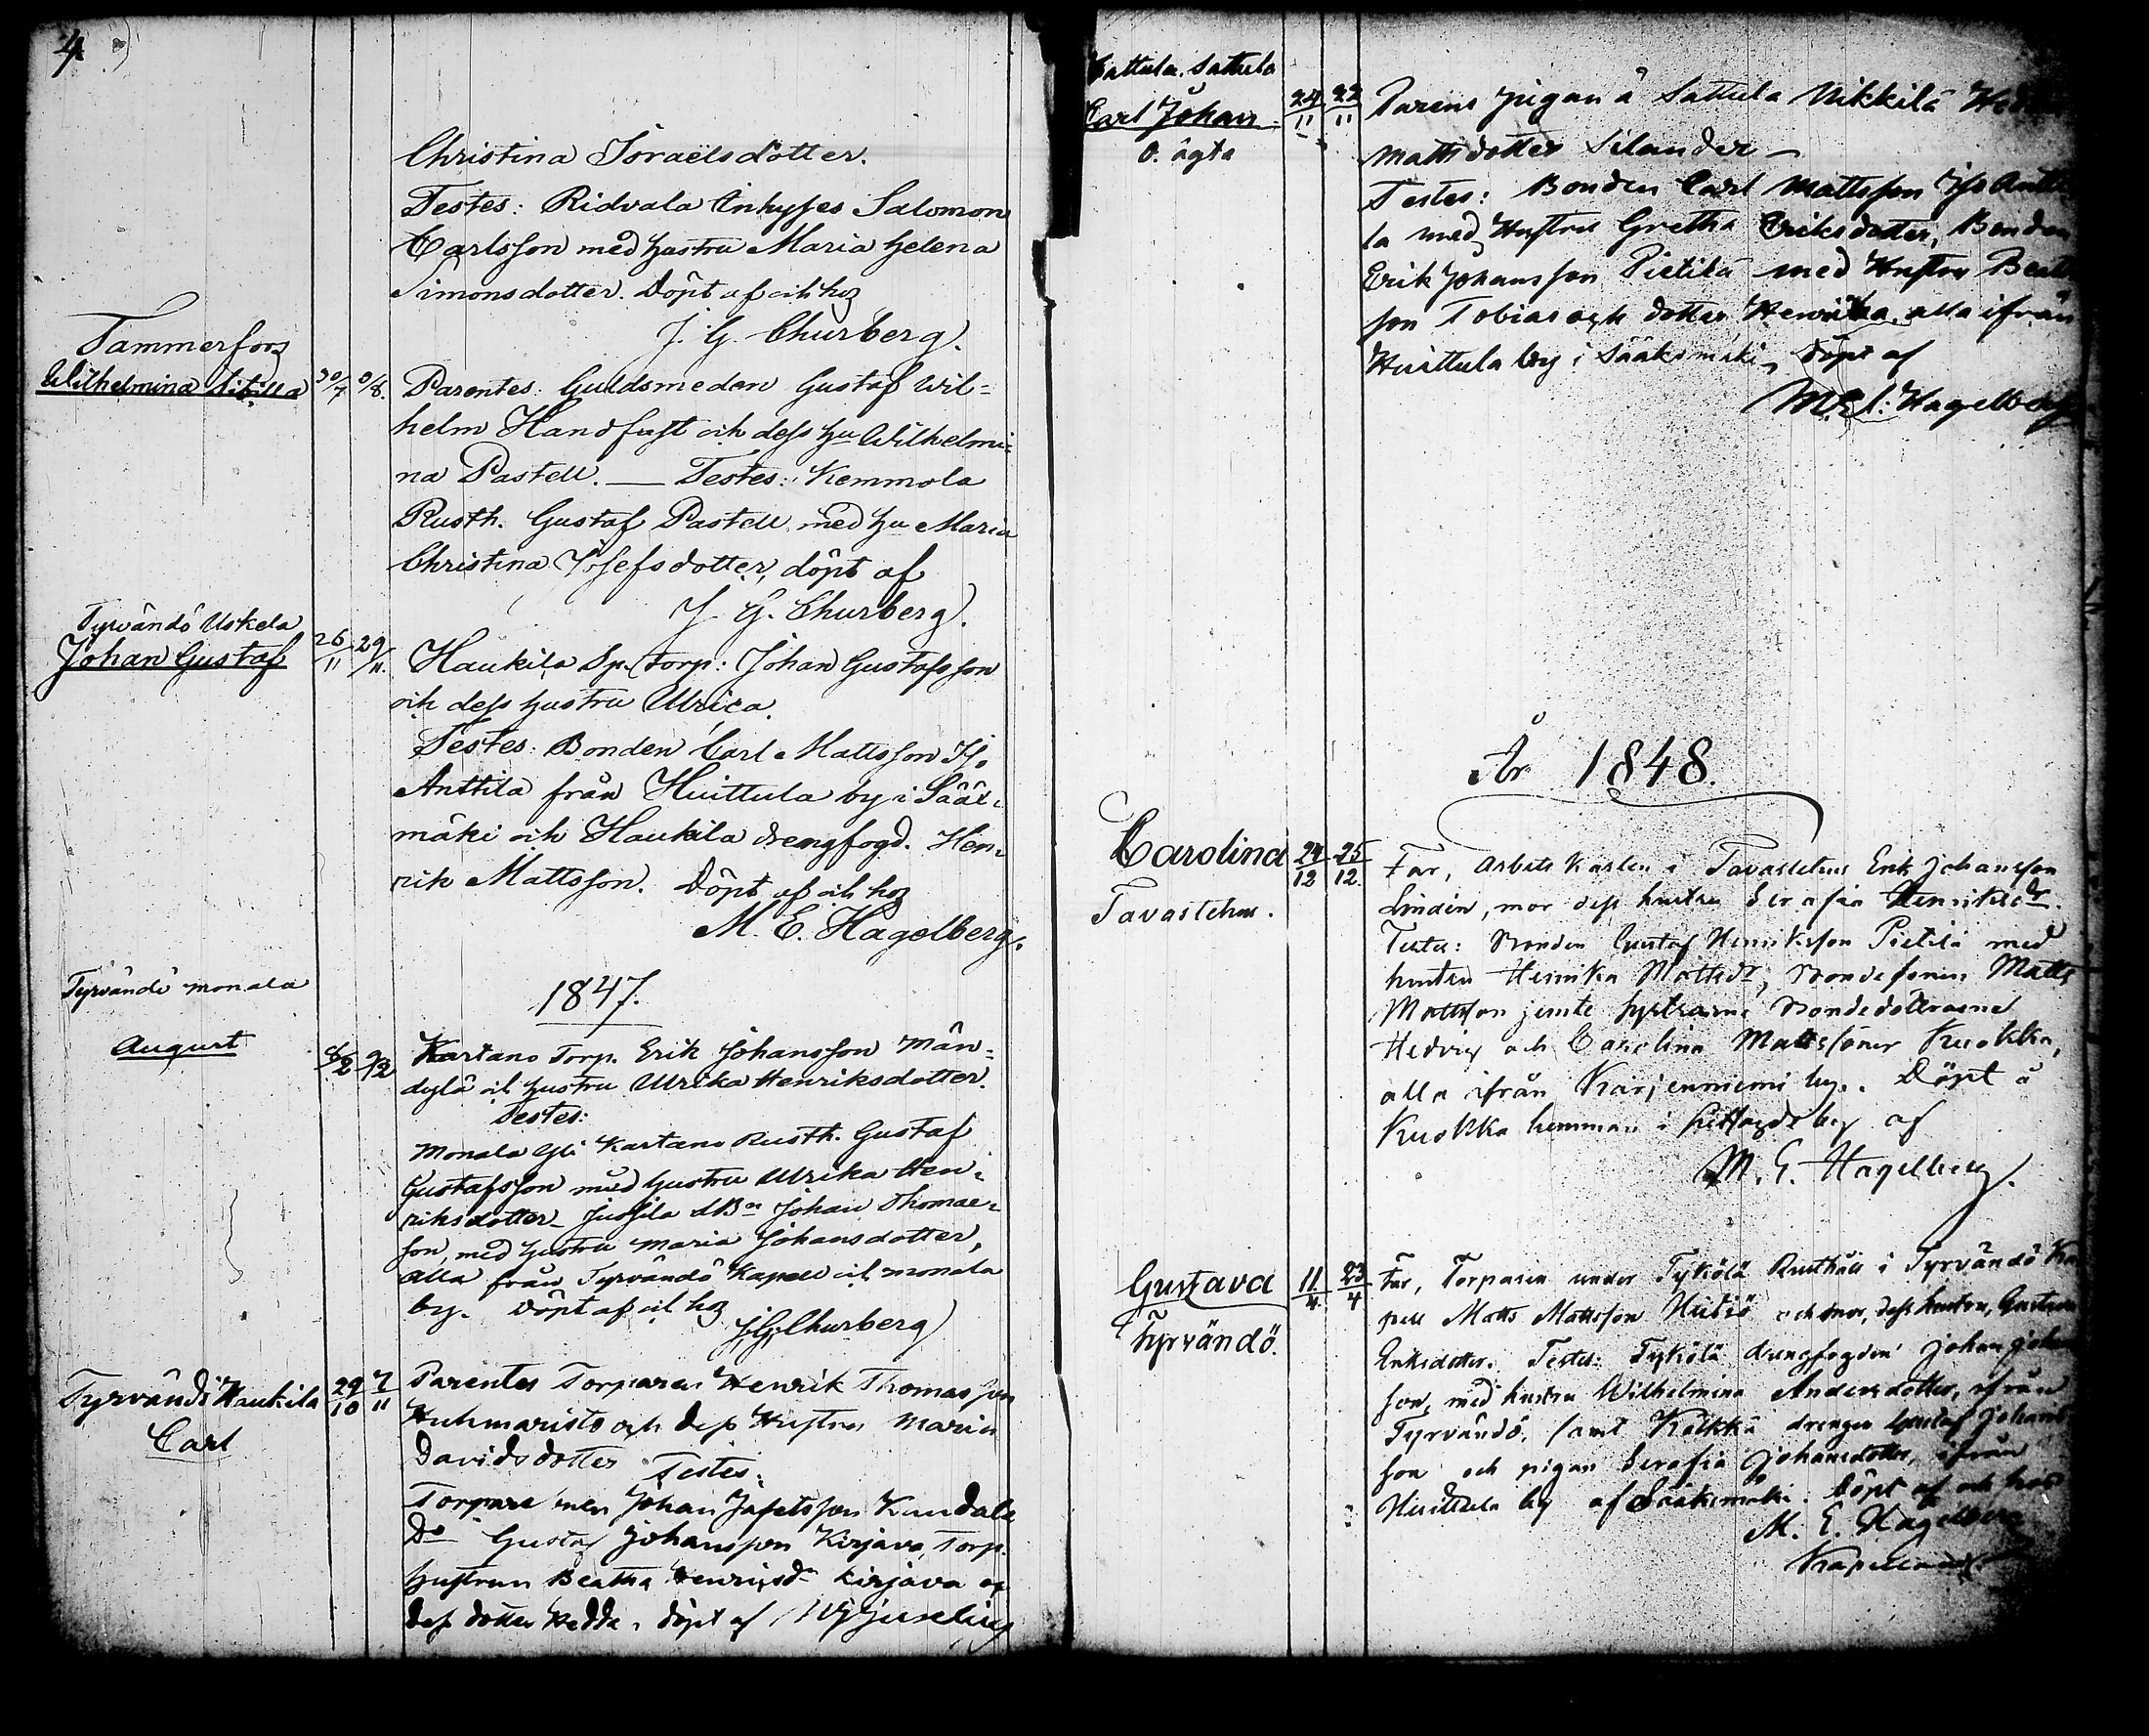 4
Christina Israëlsdotter.
Testes: Ridvala Inhyses Salomon
Carlsson med hustru Maria Helena
Simonsdotter. Döpt af och hos
J. G. Churberg.
Tammerfors
Wilhelmina 30/7 8/8. Parentes: Guldsmeden Gustaf Wil=
helm Handfast och dess hu Wilhelmi=
na Pastell. — Testes: Kemmola
Rusth. Gustaf Pastell med hu Maria
Christina Josefsdotter, döpt af
J. G. Churberg.
Tyrvändö Uskela
Johan Gustaf 26/11 29/11. Haukila Sp. torp: Johan Gustafsson
och dess hustru Ulrica.
Testes: Bonden Carl Mattsson Iso
Anttila från Huittula by i Sääx=
mäki och Haukila drengfogd. Hen=
rik Mattsson. Döpt af och hos
M. E. Hagelberg.
1847.
Tyrvändö Monala
August 8/2 9/2 Kartano Torp. Erik Johansson Män=
dylä och hustru Ulrika Henriksdotter.
Testes:
Monala Yli Kartano Rusth. Gustaf
Gustafsson med hustru Ulrika Hen=
riksdotter – Jussila dBn Johan Thomas=
son, med hustru Maria Johansdotter,
alla från Tyrvändö Kapell och Monala
by. Döpt af och hos
J. G. Churberg
Tyrvändö Haukila 29/10 7/11 Parentes Torparen Henrik Thomasson
Huhmaristo och dess Hustru Maria
Carl
Davidsdotter Testes:
Torpare men Johan Jafetsson Kundala
Do Gustaf Johansson Kirjava, Torp.
hustrun Beatha Henrigsdr Kirjava og
dess dotter Hedda, döpt af
Sattula
Carl Johan 24/11 22/11 Parens Pigan å Sattula Nikkilä
O. ägta
Mattsdotter Silander –
Testes: Bonden Carl Mattsson Iso Antti
la med Hustru Gretha Eriksdotter, Bonden
Erik Johansson Pietilä med Hustru Beat
son Tobias och dotter Henrika, alla ifrån
Huittula by i Sääksmäki, döpt af
M. E. Hagelberg
År 1848.
Carolina 24/12 25/12. Far, Arbets Karlen i Tavastehus Erik Johansson
Tavastehus.
Linden, mor dess hustru Serafia Henriksdr.
Testes: Bonden Gustaf Henriksson Pietilä med
hustru Henrika Mattsdr, Bondesonen Matts
Mattsson jemte systrarne Bondedöttrarne
Hedvig och Carolina Mattssöner Kuokka,
alla ifrån Karjenniemi by. Döpt å
Kuokka hemman i by af
M. E. Hagelberg.
Gustava 11/4. 23/4 Far, Torparen under Tykölä Rusthåll i Tyrvändö Ka
Tyrvändö.
pell Matts Mattsson och mor, dess hustru, Gustava
Eriksdotter. Testes: Tykölä drengfogden Johan Johans
son, med hustru Wilhelmina Andersdotter, ifrån
Tyrvändö, samt Kölkkä drengen Gustaf Johans
son och pigan Serafia Johansdotter, ifrån
Huittula by af Sääksmäki. Döpt af och hos
M. E. Hagelberg
Kapellan